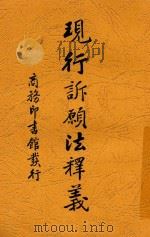 現行訴願法釋義
商務印書館發行